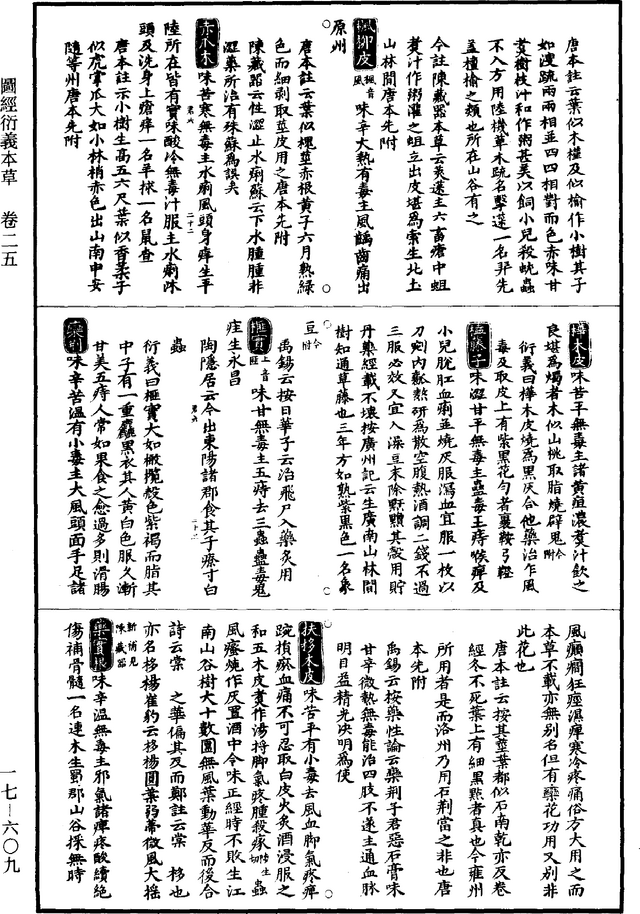 圖經衍義本草　卷二五
唐本註云葉似木槿及似榆作小樹其子
如溲疏兩兩相並四四相對而色赤味甘
煑樹枝汁和作粥甚美以飼小兒殺蚘蟲
不入方用陸機草木疏名檕迷一名羿先
蓋檀榆之類也所在山谷有之
今註陳藏器本草云莢蒾主六畜瘡中蛆
煑汁作粥灌之蛆立出皮堪為索生北土
山林間唐本先附
楓柳皮 楓音風 味辛大熱有毒主風齲齒痛出
原州
唐本註云葉似槐莖赤根黄子六月熟綠
色而細剥取莖皮用之唐本先附
陳藏器云性澀止水痢蘇云下水腫腫非
澀藥所治有殊蘇為誤矣
赤爪木 味苦寒無毒主水痢風頭身痒生平
陸所在皆有實味酸冷無毒汁服主水痢沐
頭及洗身上瘡痒一名羊梂一名鼠查
唐本註云小樹生高五六尺葉似香葇子
似虎掌爪大如小林檎赤色出山南申安
隨等州唐本先附
樺木皮 味苦平無毒主諸黄疸濃煑汁飲之
良堪為燭者木似山桃取脂燒辟鬼 今附
衍義曰樺木皮燒為黒灰合他藥治作風
毒及取皮上有紫黒花匀者裹鞍弓鞾
榼藤子 味澀甘平無毒主蠱毒五痔喉痺及
小兒脫肛血痢並燒灰服瀉血宜服一枚以
刀剜内瓤熬研為散空腹熱酒調二錢不過
三服必效又宜入澡豆末除䵟黯其殻用貯
丹藥經載不壞按廣州記云生廣南山林間
樹如通草藤也三年方始熟紫黑色一名象
豆 今附
禹錫云按日華子云治飛尸入藥炙用
榧實 味甘無毒主五痔去三蟲蠱毒鬼
疰生永昌
陶隱居云今出東陽諸郡食其子療寸白
蟲
衍義曰榧實大如橄欖殻色紫褐而脆其
中子有一重麤黒衣其人黄白色服久漸
甘美五痔人常如果食之愈過多則滑腸
欒荆 味辛苦温有小毒主大風頭面手足諸
風癲癎狂痙濕痺寒冷疼痛俗方大用之而
本草不載亦無别名但有欒花功用又别非
此花也
唐本註云按其莖葉都似石南乾亦反卷
經冬不死葉上有細黒點者真也今雍州
所用者是而洛州乃用石荆當之非也唐
本先附
禹錫云按藥性論云欒荆子君惡石膏味
甘辛微熱無毒能治四肢不遂主通血脉
明目益精光決明為使
扶栘木皮 味苦平有小毒去風血脚氣疼痺
踠損瘀血痛不可忍取白皮火炙酒浸服之
和五木皮煑作湯捋脚氣疼腫殺瘃 陟生切 蟲
風瘙燒作灰置酒中令味正經時不敗生江
南山谷樹大十數圍無風葉動華反而後合
詩云棠　之華偏其反而鄭註云棠　栘也
亦名栘楊崔豹云栘楊圓葉弱蒂微風大摇
新補見陳藏器
藥實根 味辛温無毒主邪氣諸痺疼酸續絶
傷補骨髓一名連木生蜀郡山谷採無時
一七—六〇九